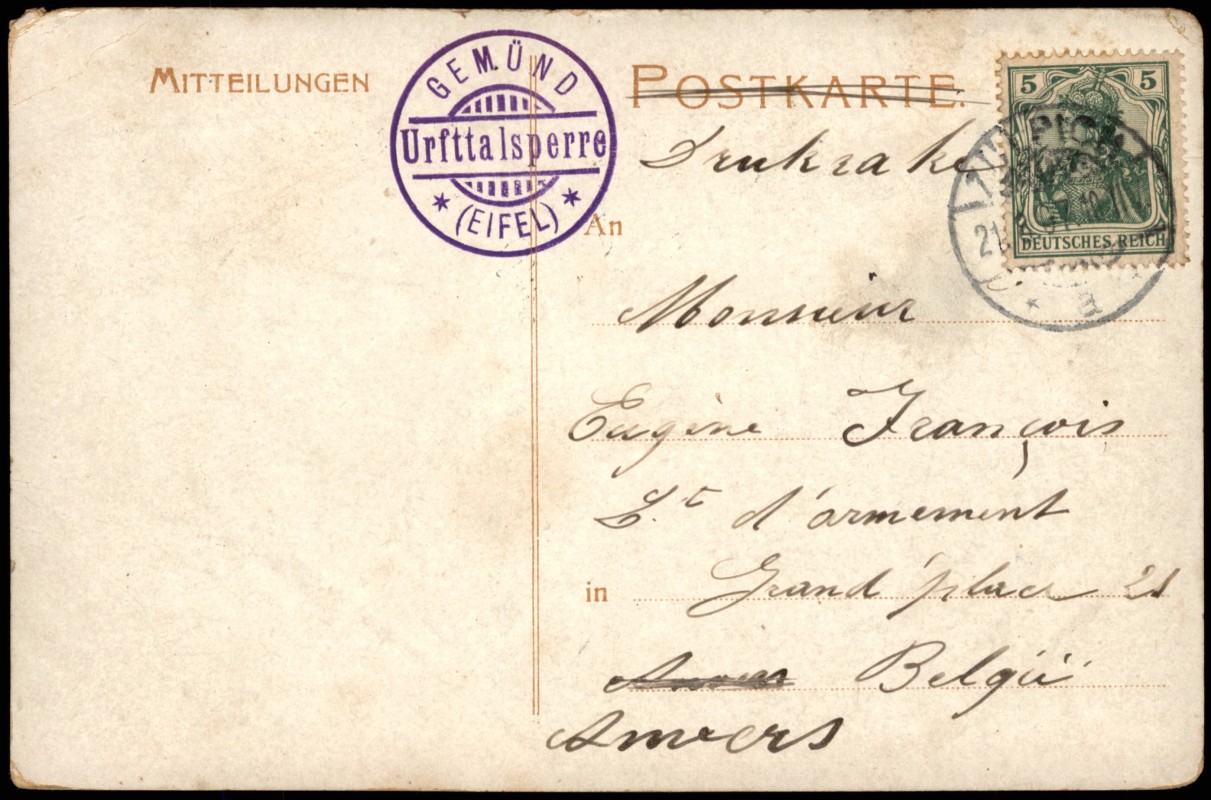 MITTEILUNGEN
GEMÜND
Urfttalsperre
* (EIFEL) *
POSTKARTE.
5 5
DEUTSCHES REICH
21
Drukzake
An
Monsieur
Eugène François
Lt d'armement
in Grand'place 21
Belgïe
Anvers